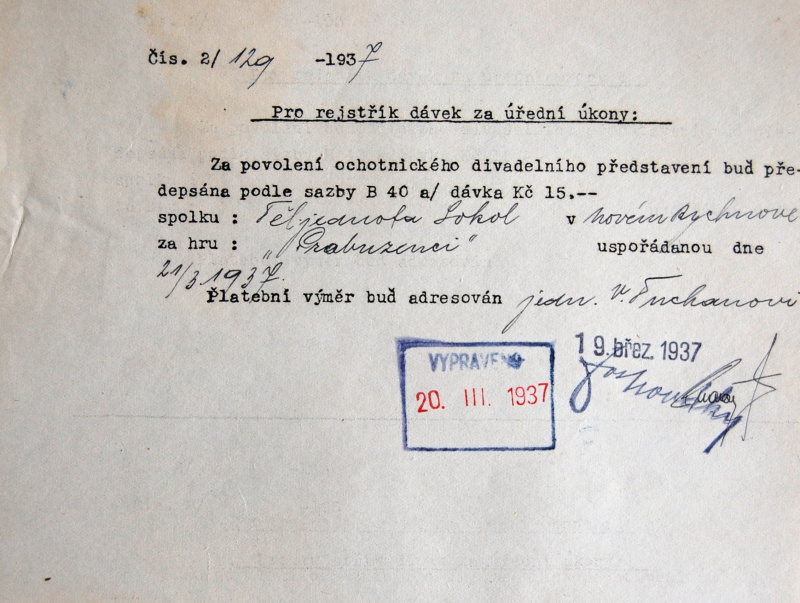 Čís. 2/ 129 -1937
Pro rejstřík dávek za úřední úkony:
Za povolení ochotnického divadelního představení buď pře-
depsána podle sazby B 40 a/ dávka Kč 15.--
spolku : Těl. jednota Sokol v Novém Rychnově
za hru : uspořádanou dne
21/3.1937.
Platební výměr buď adresován jedn. V. Tuchanovi
19. břez. 1937
VYPRAVENO
20. III. 1937